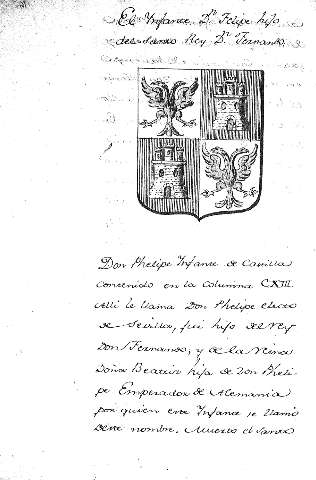 El Infante Dn Felipe hijo
del Santo Rey Dn Fernando.
Don Phelipe Infante de Castilla
contenido en la Columna CXIII.
Alli le llama Don Phelipe electo
de Sevilla, fué hijo del Rey
Don Fernando, y de la Reina
Doña Beatriz hija de Don Pheli-
pe Emperador de Alemania
por quien este Infante se llamó
deste nombre. Muerto el Santo